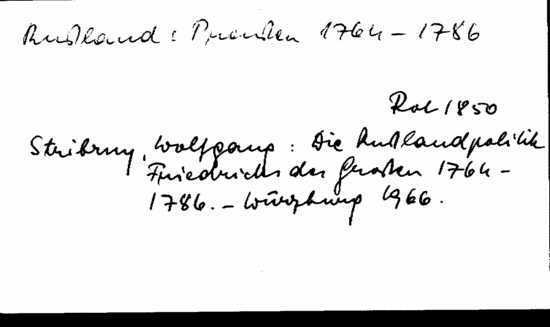 Rußland : Preußen 1764 – 1786
Rot 1850
Stribrny, Wolfgang : Die Rußlandpolitik
Friedrichs des Großen 1764 –
1786. – Würzburg 1966.